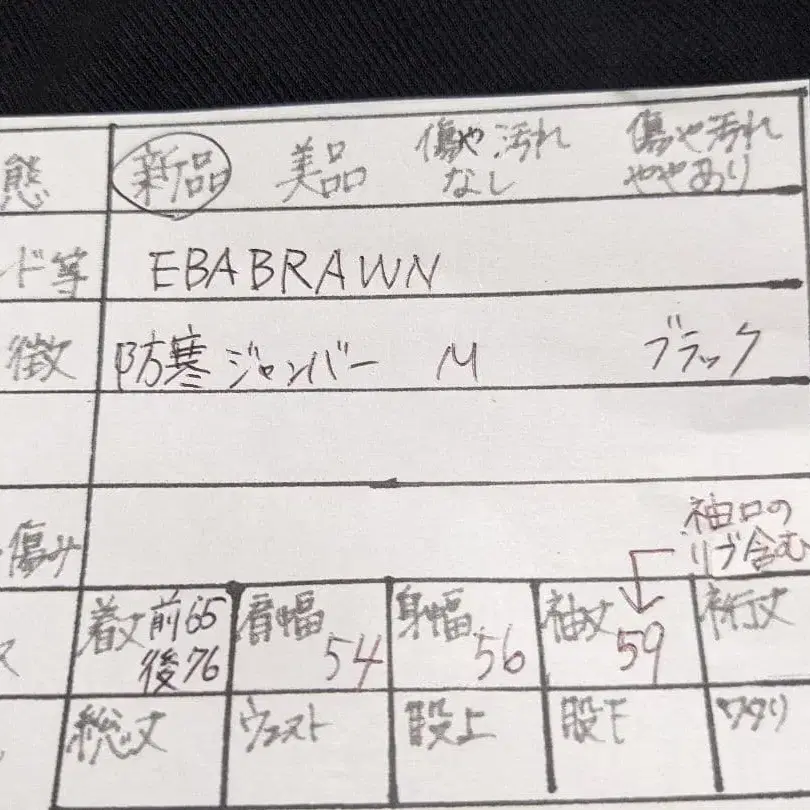 態 新品 美品 傷や汚れなし 傷や汚れややあり
ド等 EBABRAWN
徴 防寒ジャンバー M ブラック
傷み
袖口の
リブ含む
着丈 前65 肩幅 54 身幅 56 袖丈 59 裄丈
後76
ス
総丈 ウエスト 股上 股下 ワタリ